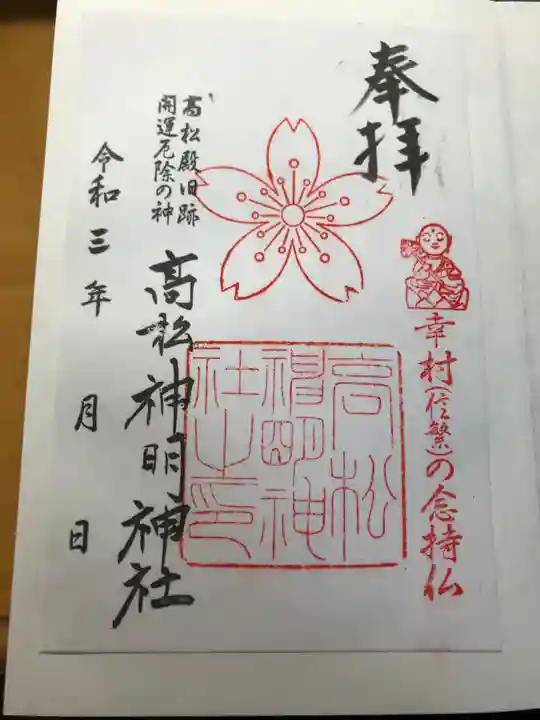 奉拝
幸村(信繁)の念持仏
高松殿旧跡
開運厄除の神
高松神明神社
高松
神明神
社之印
令和三年 月 日